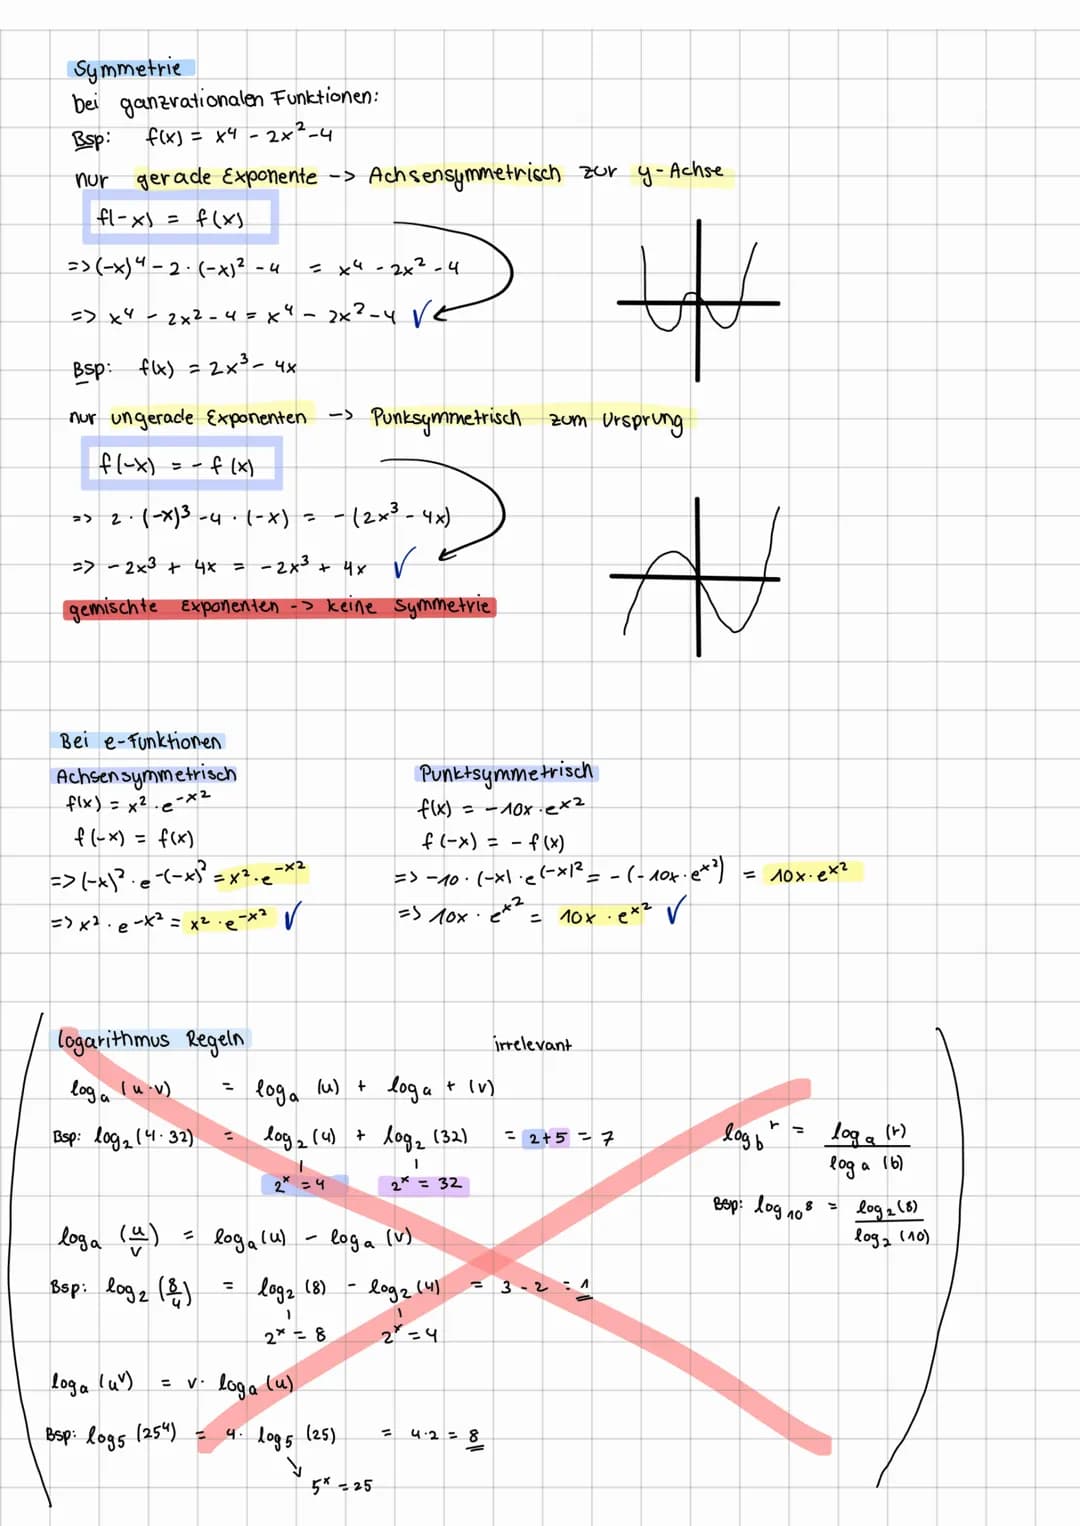 Symmetrie
bei ganzrationalen Funktionen:
Bsp: f(x) = x⁴ - 2x² - 4
nur gerade Exponente -> Achsensymmetrisch zur y-Achse
f(-x) = f(x)
=> (-x)⁴ - 2 · (-x)² - 4 = x⁴ - 2x² - 4
=> x⁴ - 2x² - 4 = x⁴ - 2x² - 4 ✓
Bsp: f(x) = 2x³ - 4x
nur ungerade Exponenten -> Punksymmetrisch zum Ursprung
f(-x) = - f(x)
=> 2 · (-x)³ - 4 · (-x) = - (2x³ - 4x)
=> - 2x³ + 4x = - 2x³ + 4x ✓
gemischte Exponenten -> keine Symmetrie
Bei e-Funktionen
Achsensymmetrisch
f(x) = x² · e^-x²
f(-x) = f(x)
=> (-x)² · e^-(-x)² = x² · e^-x²
=> x² · e^-x² = x² · e^-x² ✓
Punktsymmetrisch
f(x) = -10x · e^x²
f(-x) = - f(x)
=> -10 · (-x) · e^(-x)² = - (-10x · e^x²) = 10x · e^x²
=> 10x · e^x² = 10x · e^x² ✓
logarithmus Regeln irrelevant
log_a (u·v) = log_a (u) + log_a + (v)
Bsp: log₂ (4·32) = log₂ (4) + log₂ (32) = 2+5 = 7
2^x = 4 2^x = 32
log_a (u/v) = log_a (u) - log_a (v)
Bsp: log₂ (8/4) = log₂ (8) - log₂ (4) = 3 - 2 = 1
2^x = 8 2^x = 4
log_a (u^v) = v · log_a (u)
Bsp: log₅ (25⁴) = 4 · log₅ (25) = 4·2 = 8
5^x = 25
log_b^r = log_a (r) / log_a (b)
Bsp: log₁₀⁸ = log₂ (8) / log₂ (10)